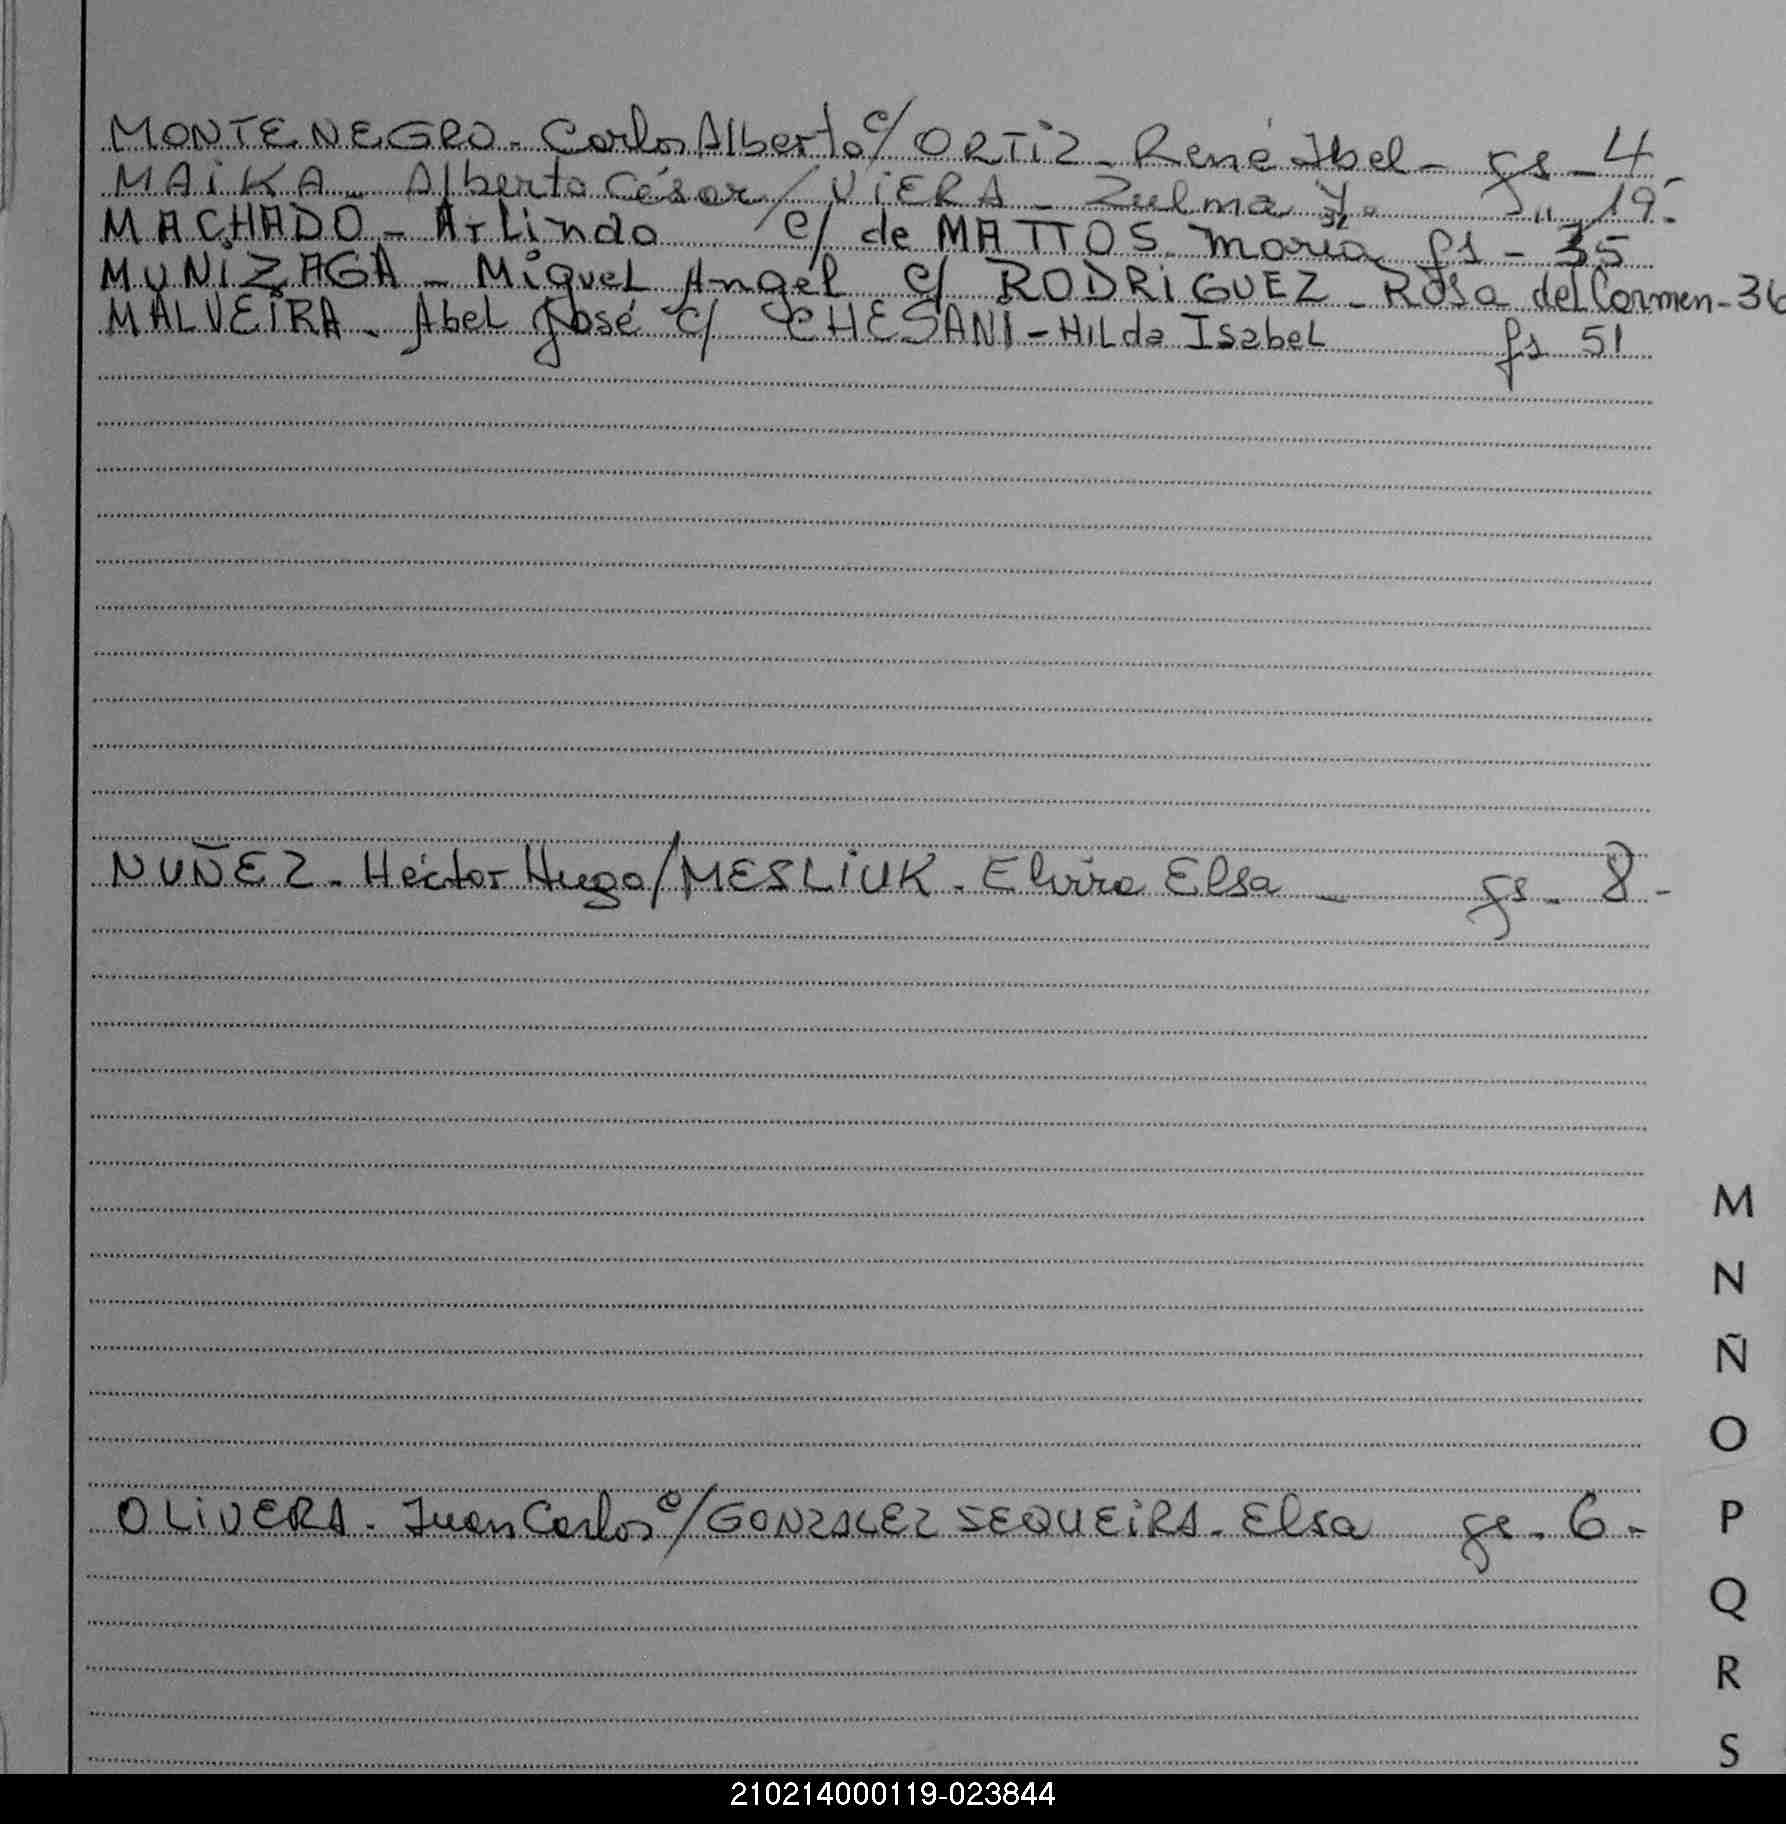 MONTENEGRO - Carlos Alberto c/ ORTiZ - René Ibel - fs - 4
MAiKA - Alberto César / ViERA - Zulma Y. " 19.-
MACHADO - ArLindo c/ de MATTOS María fs - 35
MUNiZAGA - MigueL Angel c/ RODRiGUEZ - Rosa del Carmen - 36
MALVEiRA - Abel José c/ CHESANI - HiLda IsabeL fs 51
NUÑEZ - Héctor Hugo / MESLiUK - Elvira Elsa - fs - 8 -
OLiVERA - Juan Carlos c/ GONZALEZ SEQUEiRA - Elsa fs - 6 -
M
N
Ñ
O
P
Q
R
S
210214000119-023844